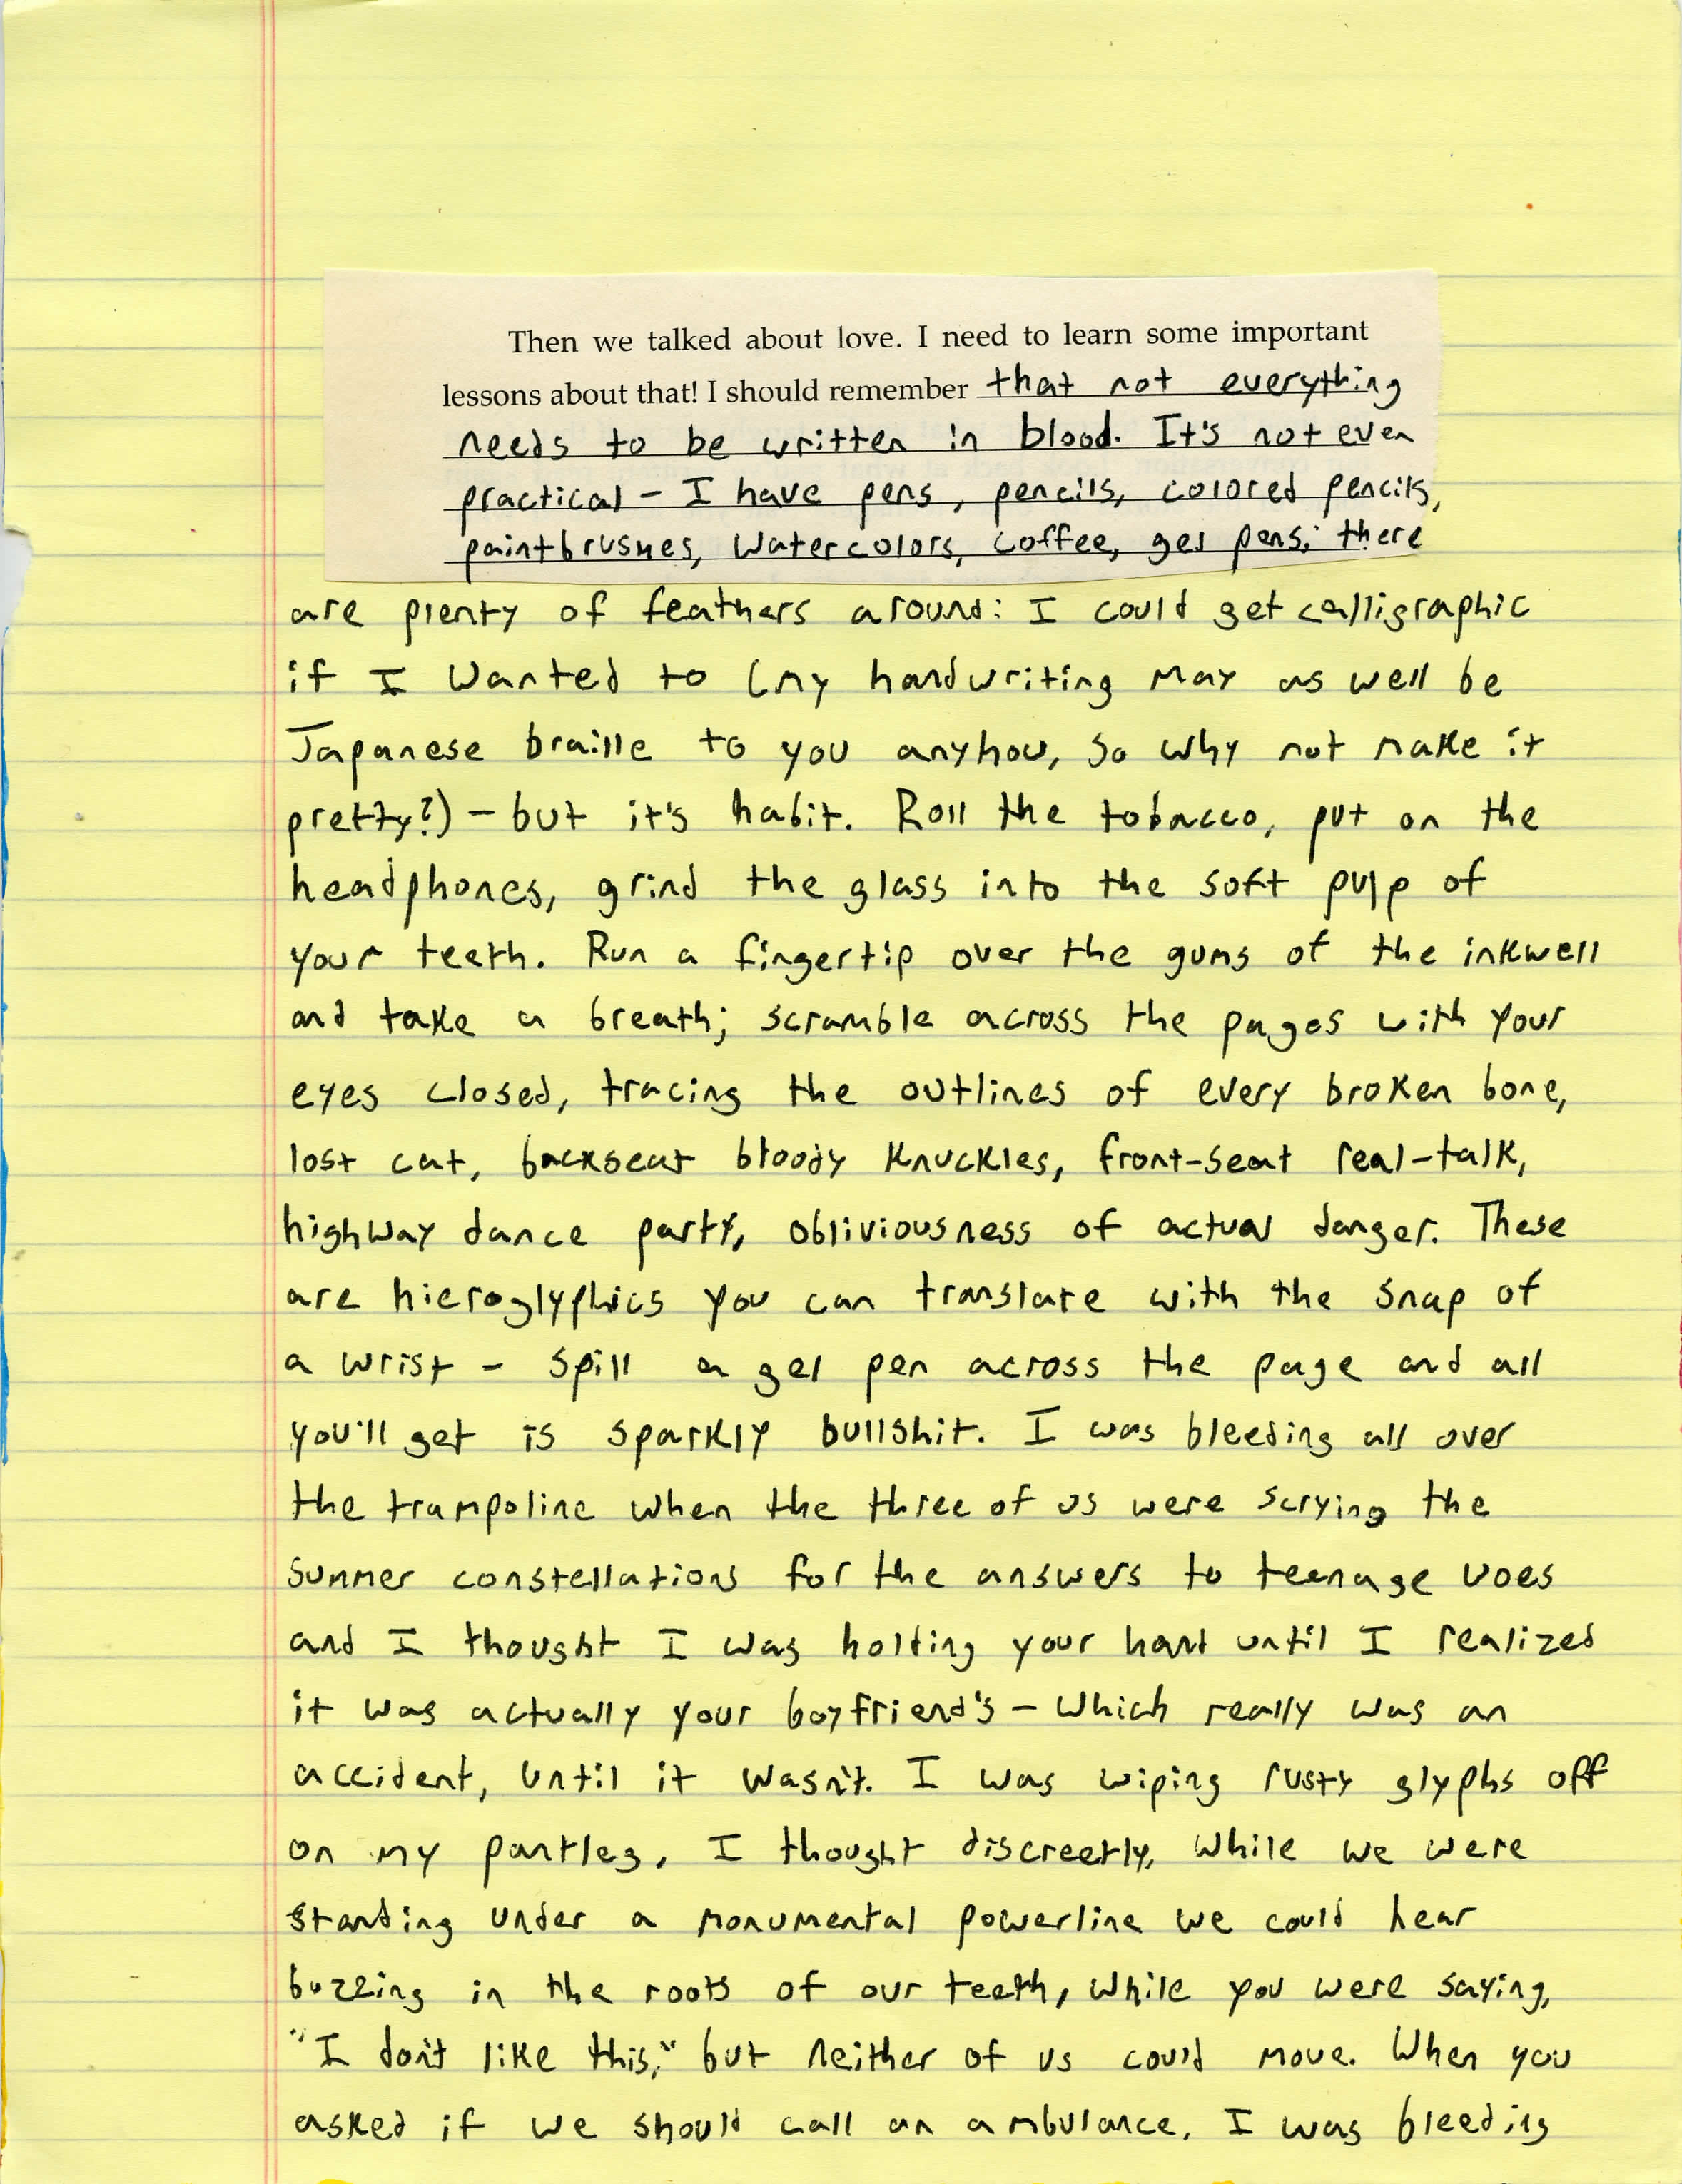 Then we talked about love. I need to learn some important
lessons about that! I should remember that not everything
needs to be written in blood. It's not even
practical – I have pens, pencils, colored pencils,
paintbrushes, watercolors, coffee, gel pens; there
are plenty of feathers around: I could get calligraphic
if I wanted to (my handwriting may as well be
Japanese braille to you anyhow, so why not make it
pretty?) – but it's habit. Roll the tobacco, put on the
headphones, grind the glass into the soft pulp of
your teeth. Run a fingertip over the gums of the inkwell
and take a breath; scramble across the pages with your
eyes closed, tracing the outlines of every broken bone,
lost cat, backseat bloody knuckles, front-seat real-talk,
highway dance party, obliviousness of actual danger. These
are hieroglyphics you can translate with the snap of
a wrist – spill a gel pen across the page and all
you'll get is sparkly bullshit. I was bleeding all over
the trampoline when the three of us were scrying the
summer constellations for the answers to teenage woes
and I thought I was holding your hand until I realized
it was actually your boyfriend's – which really was an
accident, until it wasn't. I was wiping rusty glyphs off
on my pantleg, I thought discreetly, while we were
standing under a monumental powerline we could hear
buzzing in the roots of our teeth, while you were saying,
"I don't like this," but neither of us could move. When you
asked if we should call an ambulance, I was bleeding